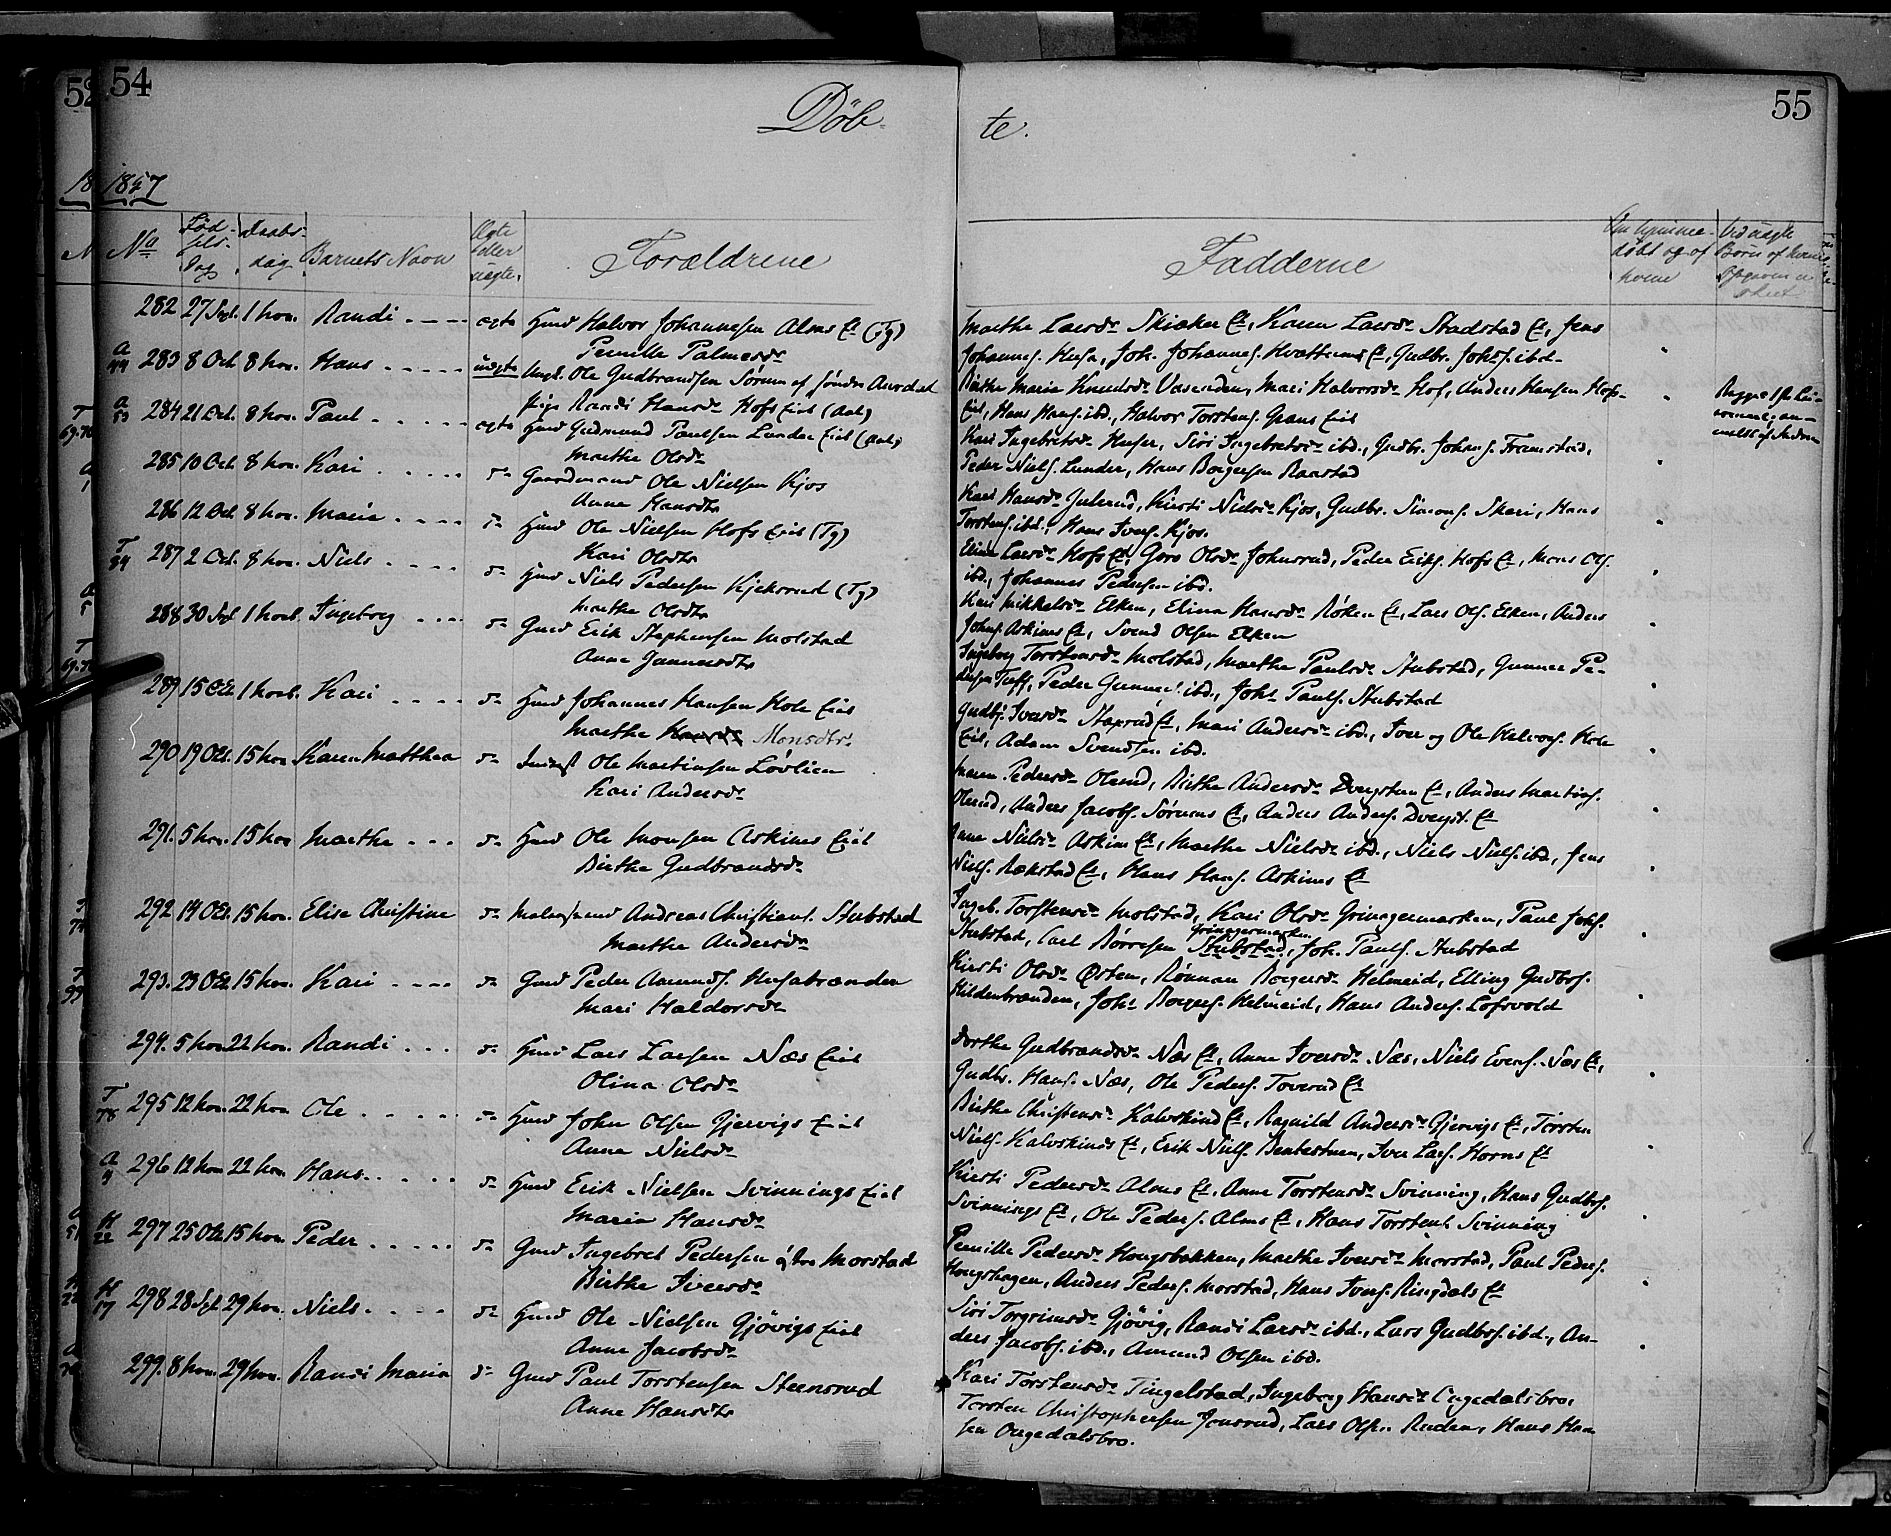 54
55
Døb-
te.
1857
No
Fød-
sels-
Dag
Daabs-
dag
Barnets Navn
Ægte
eller
uægte.
Forældrene
Fadderne
282 27 Sept. 1 Nov. Randi ægte Hmd Halvor Johannesen Alms Et (Tg)
Pernille Palmesdr
Marthe Larsdr Skiaker Et, Karen Larsdr Stadstad Et, Jens
Johannes. Husa, Joh. Johannes. Hvattums Et, Gudbr. Johs. ibd.
283 8 Oct 8 Nov. Hans uægte Ungk. Ole Gudbrandsen Sørum af søndre Aurdal
Pige Randi Hansdr Hofs Eiet (Aal)
Birthe Maria Knudsdr Vasenden, Mari Halvorsdr Hof, Anders Hansen Hofs-
Eiet, Hans Hans. ibd., Halvor Torstens. Grans Eiet
284 21 Oct. 8 Nov. Paul ægte Hmd Gudmund Paulsen Lunder Eiet (Aal)
Marthe Olsdr
Kari Ingebretsdr Husher, Siri Ingebretsdr ibd., Gudbr. Johans. Framstad,
Peder Niels. Lunder, Hans Borgersen Raastad
285 10 Oct. 8 Nov. Kari do Gaardmand Ole Nielsen Kjos
Anne Hansdtr
Kari Hansdr Julerud, Kirsti Nielsdr Kjos, Gudbr. Simons. Skari, Hans
Torstens. ibd., Hans Ivers. Kjos.
286 12 Oct. 8 Nov. Marie do Hmd Ole Nielsen Hofs Eiet (Tg)
Kari Olsdtr
Eline Larsdr Hofs Et, Goro Olsdr Johnsrud, Peder Eriks. Hofs Et, Mons Ols.
ibd., Johannes Pedersen ibd.
287 2 Oct. 8 Nov. Niels do Hmd Niels Pedersen Kjekerud (Tg)
Marthe Olsdtr
Kari Mikkelsdr Elken, Elina Hansdr Røken Et, Lars Ols. Elken, Anders
Johns. Askims Et, Svend Olsen Elken
288 30 Sept 1 Novb. Ingeborg do Gmd Erik Stephensen Molstad
Anne Gunnersdtr
Ingeborg Torstensdr Molstad, Marthe Paulsdr Stubstad, Gunner Pe-
dersen Tuff, Peder Gunners. ibd., Johs Pauls. Stubstad
289 15 Oct 1 Novb. Kari do Hmd Johannes Hansen Hole Eiet
Marthe Monsdtr.
Gudbj. Iversdr Staxrud Et, Mari Andersdr ibd., Iver og Ole Halvors. Hole
Eiet, Adam Svendsen ibd.
290 19 Oct. 15 Nov Karen Matthea do Inderst Ole Martinsen Løvlien
Kari Andersdr
Maren Pedersdr Olerud, Birthe Andersdr Dvergsten Et, Anders Martins.
Olerud, Anders Jacobs. Sørums Et, Anders Anders. Dvergst. Et
291. 5 Nov. 15 Nov Marthe do Hmd Ole Monsen Askims Eiet
Birthe Gudbrandsdr
Anne Nielsdr Askims Et, Marthe Nielsdr ibd., Niels Niels. ibd., Jens
Niels. Rækstad Et, Hans Hans. Askims Et
292 14 Oct. 15 Nov. Elise Christine do Andreas Christians. Stubstad
Marthe Andersdr
Ingeb. Torstensdr Molstad, Kari Olsdr Grinagermarken, Paul Johs.
Grinagermarken
Stubstad, Carl Børresen Stubstad, Joh. Pauls. Stubstad
293. 23 Oct 15 Nov. Kari do Gmd Peder Amunds. Husabrænden
Mari Haldorsdr
Kirsti Olsdr Østen, Rønnau Borgersdr Helmeid, Elling Gudbrs.
Hildenbrænden, Johs Borgers. Helmeid, Hans Anders. Lofsvold
294. 5 Nov 22 Nov. Randi do Hmd Lars Larsen Næs Eiet
Olina Olsdr
Dorthe Gudbrandsdr Næs Et, Anne Iversdr Næs, Niels Evens. Næs Et,
Gudbr. Hans. Næs, Ole Peders. Toverud Et
295 12 Nov. 22 Nov Ole do Hmd John Olsen Gjervigs Eiet
Anne Nielsdr
Birthe Christensdr Kalvskind Et, Ragnild Andersdr Gjervigs Et, Torsten
Niels. Kalvskinds Et, Erik Niels. Bentestuen, Iver Lars. Horns Et
296 12 Nov 22 Nov. Hans do Hmd Erik Nielsen Svinnings Eiet
Maria Hansdr
Kirsti Pedersdr Alms Et, Anne Torstensdr Svinning, Hans Gudbrs.
Svinnings Et, Ole Peders. Alms Et, Hans Torstens. Svinning
297 25 Oct 15 Nov Peder do Gmd Ingebret Pedersen østre Morstad
Birthe Iversdr
Pernille Pedersdr Hougsbakken, Marthe Iversdr Morstad, Paul Peders.
Hougshagen, Anders Peders. Morstad, Hans Ivers. Ringdals Et
298 28 Spt 29 Nov. Niels do Hmd Ole Nielsen Gjøvigs Eiet
Anne Jacobsdr
Siri Torgrimsdr Gjøvig, Randi Larsdr ibd., Lars Gudbrs. ibd., An-
ders Jacobs. ibd., Amund Olsen ibd.
299. 8 Nov. 29 Nov. Randi Maria do Gmd Paul Torstensen Steensrud
Anne Hansdtr
Kari Torstensdr Tingelstad, Ingeborg Hansdr Ongedalsbro,
Torsten Christophersen Jonsrud, Lars Olsen Ruden, Hans Han
sen Ongedalsbro.